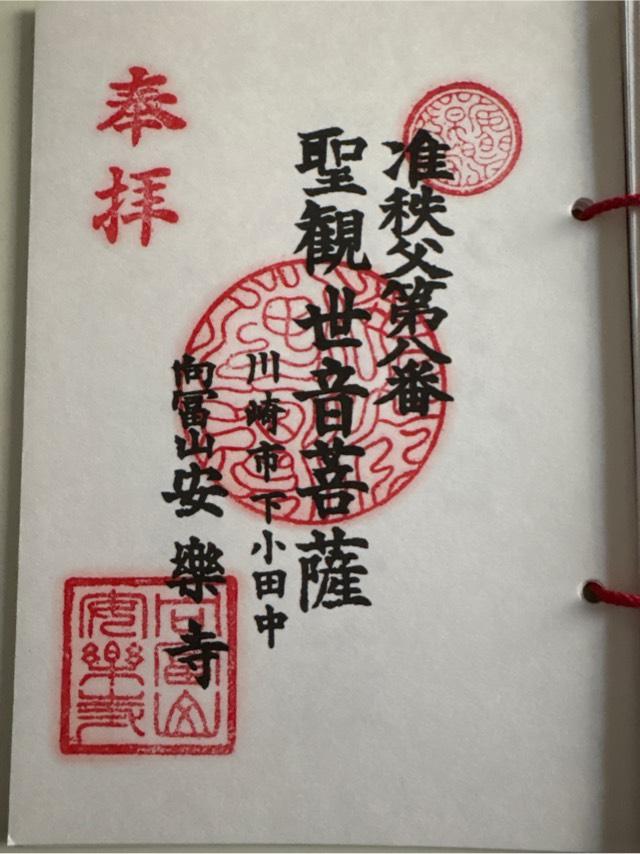 准秩父第八番
聖観世音菩薩
川崎市下小田中
向冨山安樂寺
奉拝
向冨山
安樂寺